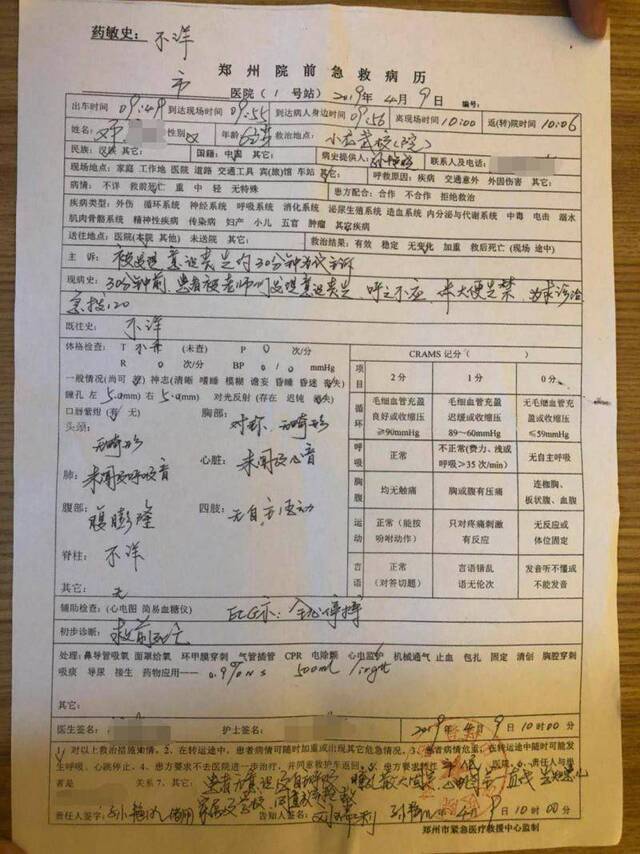 药敏史：不详
郑州院前急救病历
市 医院（1号站）2019年4月9日 编号：
出车时间 09:49 到达现场时间 09:55 到达病人身边时间 09:56 离现场时间 10:00 返(转)院时间 10:06
姓名： 性别 女 年龄 救治地点： 小龙武校(院)
民族：汉 其它： 国籍：中国 其它： 病史提供人： 联系人及电话：
现场地点：家庭 工作地 医院 道路 交通工具 宾(旅)馆 车站 其它： 呼救原因：疾病 交通意外 外因伤害 其它：
病情：不详 救前死亡 重 中 轻 无特殊 患方配合：合作 不合作 拒绝救治
疾病类型：外伤 循环系统 神经系统 呼吸系统 消化系统 泌尿生殖系统 造血系统 内分泌与代谢系统 中毒 电击 溺水
肌肉骨骼系统 精神性疾病 传染病 妇产 小儿 五官 肿瘤 其它疾病
送往地点：医院(本院 其他) 未送院 其它： 救治结果：有效 稳定 无变化 加重 救后死亡(现场 途中)
主 诉：被发现意识丧失约30分钟为代主诉
现病史：30分钟前，患者被老师们发现意识丧失，呼之不应，伴大便失禁，为求诊治
急拨120
既往史：不详
体格检查：T 不升 (未查) P 0 次/分
R 0 次/分 BP 0/0 mmHg
一般情况(尚可 差) 神志(清晰 嗜睡 模糊 谵妄 昏睡 昏迷 丧失)
瞳孔 左 5.0(mm) 右 5.0(mm) 对光反射(存在 迟钝 消失)
口唇紫绀(有 无)
头颈：无畸形 胸部：对称，无畸形
肺：未闻及呼吸音 心脏：未闻及心音
腹部：腹膨隆 四肢：无自主活动
脊柱：不详
其它：无
CRAMS记分（ ）
项目 2分 1分 0分
循环 毛细血管充盈良好或收缩压≥90mmHg 毛细血管充盈迟缓或收缩压89～60mmHg 无毛细血管充盈或收缩压≤59mmHg
呼吸 正常 不正常(费力、浅或呼吸＞35次/min) 无自主呼吸
胸腹 均无触痛 胸或腹有压痛 连枷胸、板状腹、血腹
运动 正常（能按吩咐动作） 只对疼痛刺激有反应 无反应或体位固定
言语 正常(对答切题) 言语错乱语无伦次 发音听不懂或不能发音
辅助检查：(心电图 简易血糖仪) ECG示：全心停搏
初步诊断：救前死亡
处理：鼻导管吸氧 面罩给氧 环甲膜穿刺 气管插管 CPR 电除颤 心电监护 机械通气 止血 包扎 固定 清创 胸腔穿刺
吸痰 导尿 接生 药物应用—— 0.9%NS 500ml ivgtt
其它：
医生签名： 护士签名： 2019年4月9日10时00分
1、对以上救治措施知情。2、在转运途中，患者病情可随时加重或出现其它危急情况。3、患者病情危重，在转运途中随时可能发生
呼吸、心跳停止。4、患方要求不去医院进一步治疗，并同意救护车返回。
者是 关系 7、其它： 患者无意识及自主呼吸
责任人签字： 告知人签名： 4月9日10时00分
郑州市紧急医疗救援中心监制